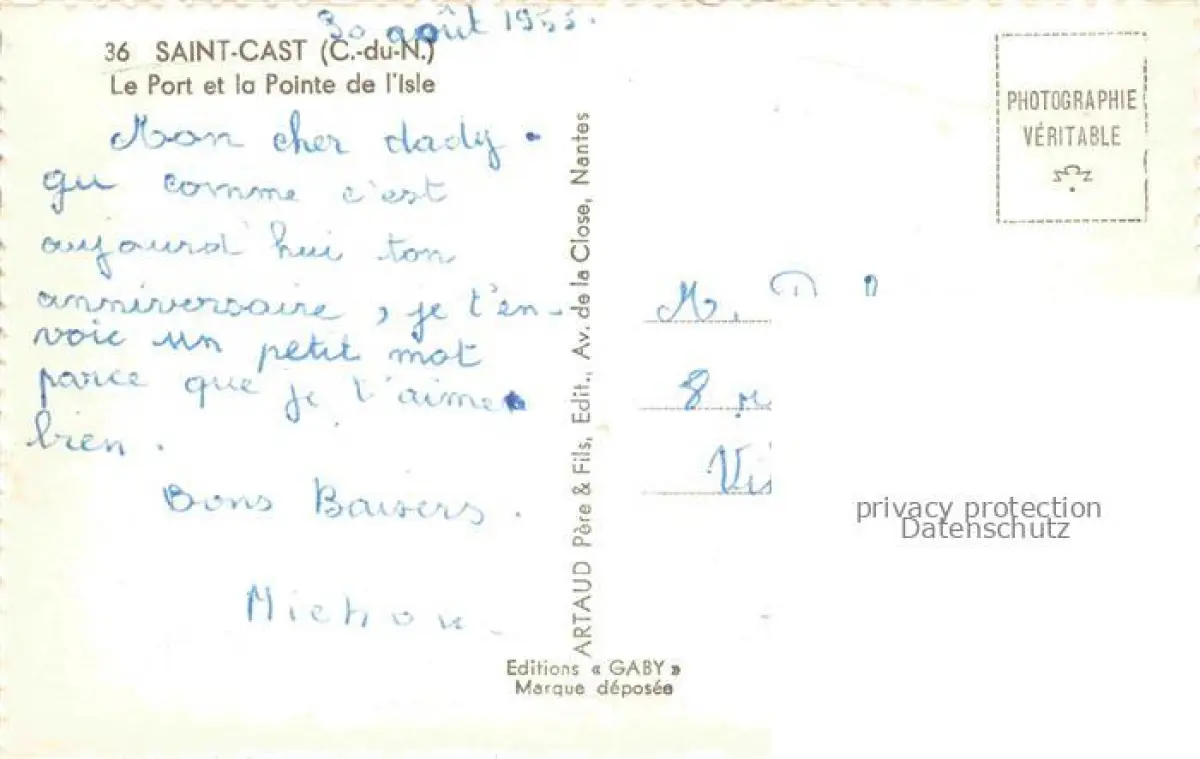 30 août 1955.
36 SAINT-CAST (C.-du-N.)
Le Port et la Pointe de l'Isle
Mon cher dady.
qu comme c'est
aujourd'hui ton
anniversaire, je t'en-
voie un petit mot
parce que je t'aime
bien.
Bons Baisers.
Michou
ARTAUD Père & Fils, Edit., Av. de la Close, Nantes
Editions « GABY »
Marque déposée
PHOTOGRAPHIE
VÉRITABLE
M.
8
privacy protection
Datenschutz